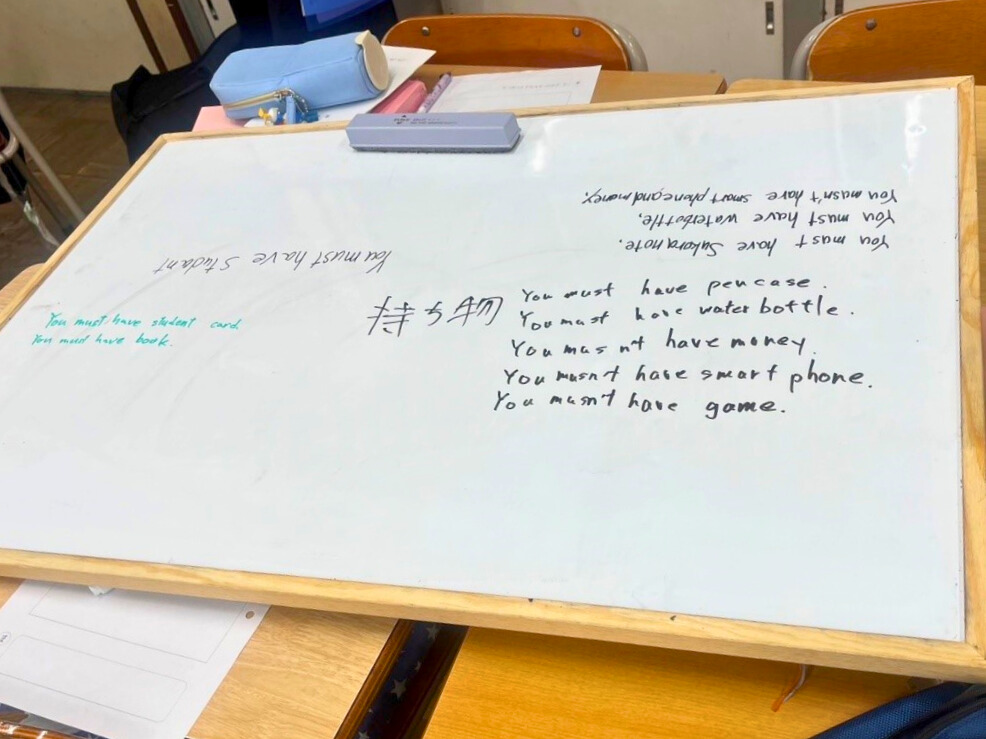 You musn't have smart phone and money.
You must have waterbottle.
You must have Sakura note.
You must have Studant
You must have student card
You must have book.
持ち物
You must have pencase.
You must have water bottle.
You musn't have money.
You musn't have smart phone.
You musn't have game.